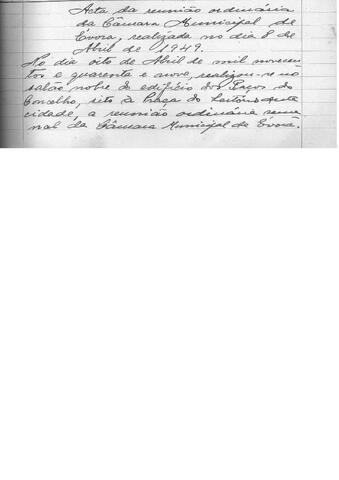 Acta da reunião ordinária
da Câmara Municipal de
Évora, realizada no dia 8 de
Abril de 1949.
No dia oito de Abril de mil novecen
tos e quarenta e nove, realizou-se no
salão nobre do edifício dos Paços do
Concelho, sito à Praça do Sertório desta
cidade, a reunião ordinária sema
nal da Câmara Municipal de Évora.